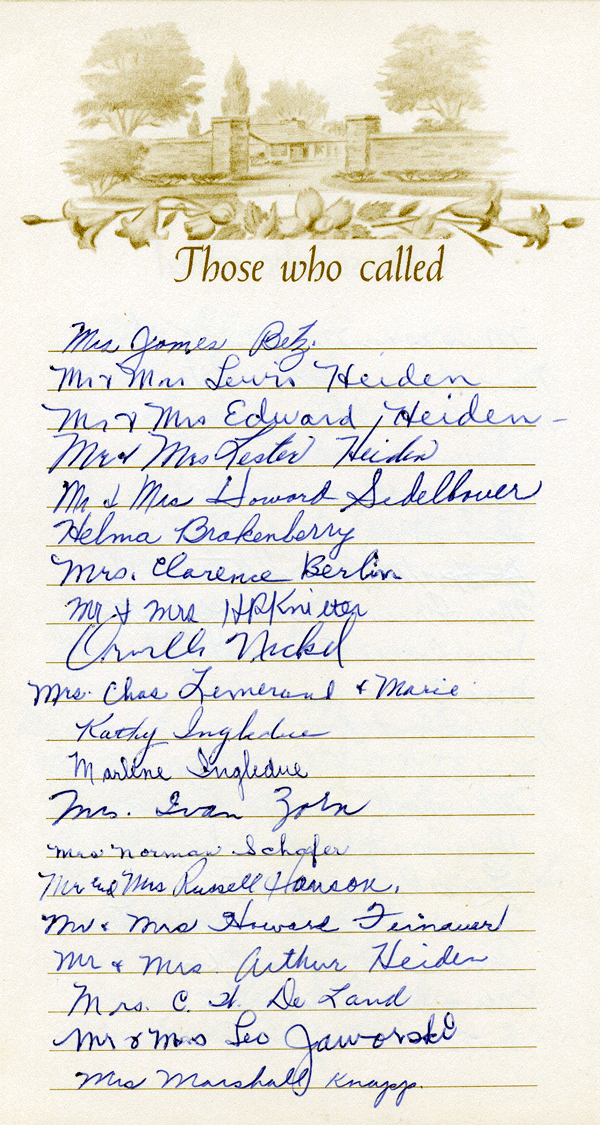 Those who called
Mrs James Betz.
Mr & Mrs Lewis Heiden
Mr & Mrs Edward Heiden -
Mr & Mrs Lester Heiden
Mr & Mrs Howard Sidelbower
Helma Brokenberry
Mrs. Clarence Berlin
Mr & Mrs HR Knitter
Orville Nickel
Mrs. Chas Lemerand & Marie
Kathy Ingledue
Marlene Ingledue
Mrs. Ivan Zorn
Mrs Norman Schafer
Mr and Mrs Russell Hanson.
Mr & Mrs Howard Feinauer
Mr & Mrs. Arthur Heiden
Mrs. C. H. De Land
Mr & Mrs Leo Jaworski
Mrs Marshall Knapp.